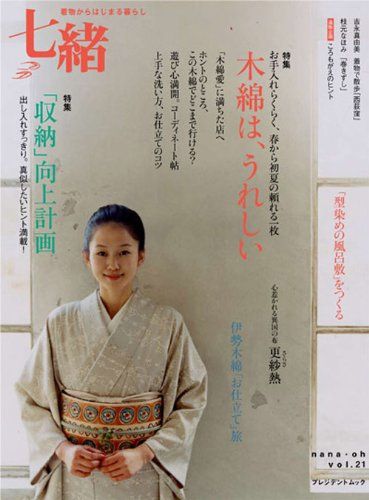 着物からはじまる暮らし
七緒
吉永真由美 着物で散歩「西荻窪」
枝元なほみ「巻きずし」
ころもがえのヒント
特集
お手入れらくらく、春から初夏の頼れる一枚
木綿は、うれしい
「木綿愛」に満ちた店へ
ホントのところ、
この木綿でどこまで行ける?
遊び心満開。コーディネート帖
上手な洗い方、お仕立てのコツ
特集
「収納」向上計画
出し入れすっきり。真似したいヒント満載!
「型染めの風呂敷」をつくる
心惹かれる異国の布 更紗熱
さらさ
伊勢木綿「お仕立て」旅
nana-oh
vol.21
プレジデントムック